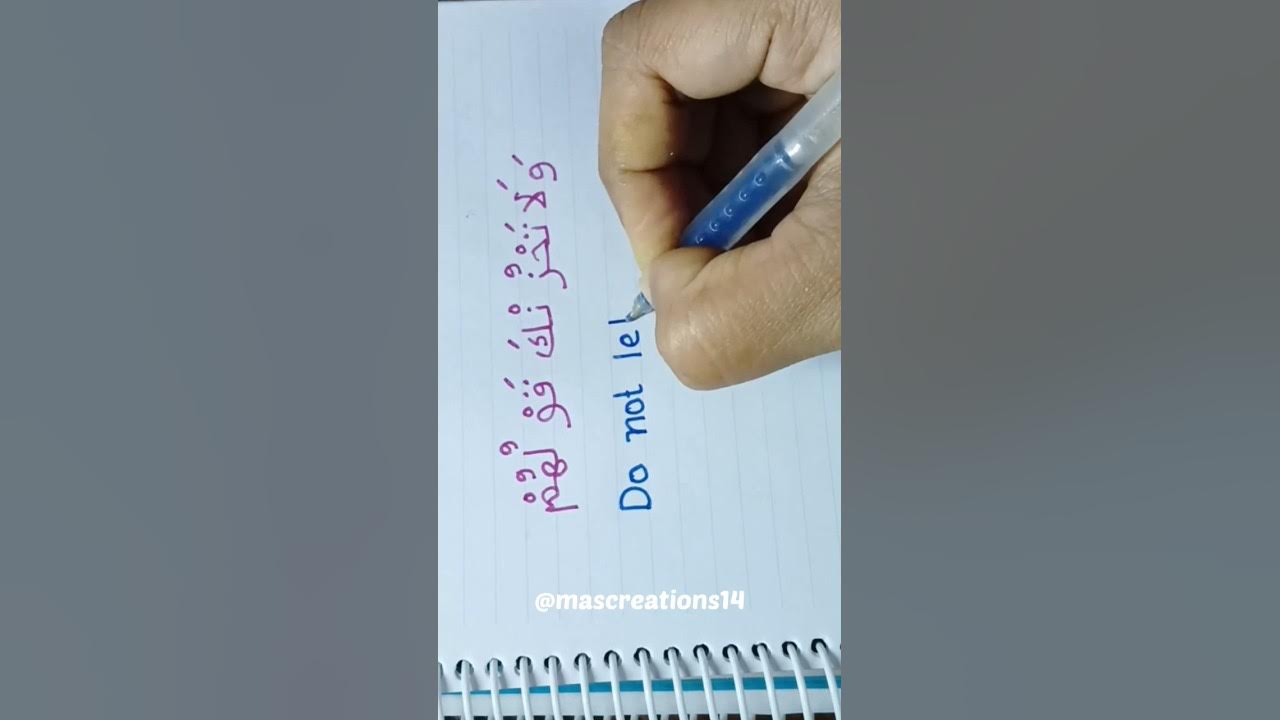 وَلَا تَحْزُنْكَ قَوْلُهُمْ
Do not let
@mascreations14